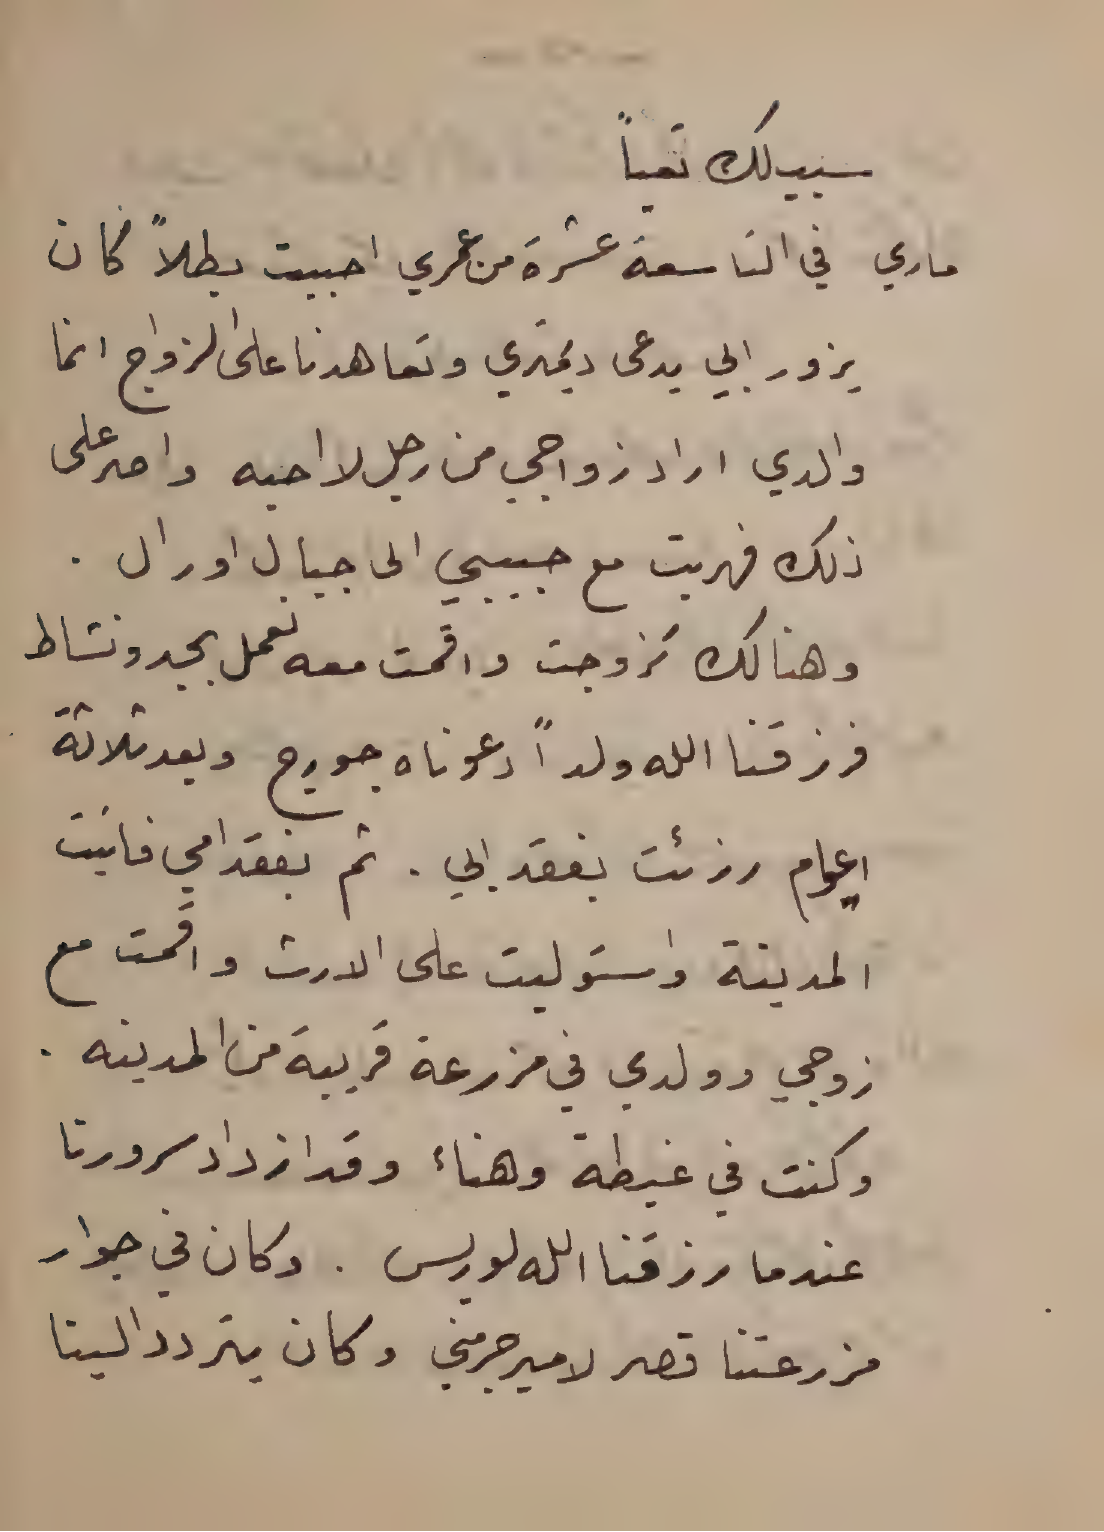 سيبيلك تعباً
ماري في التاسعة عشرة من عمري احببت بطلاً كان
يزور ابي يدعى ديمتري وتعاهدنا على الزواج انما
والدي اراد زواجي من رجل لا احبه واصر على
ذلك فهربت مع حبيبي الى جبال اورال .
وهنالك تزوجت واقمت معه نعمل بجد ونشاط
فرزقنا الله ولداً دعوناه جورج وبعد ثلاثة
اعوام رزئت بفقد ابي . ثم بفقد امي فاتيت
المدينة واستوليت على الارث واقمت مع
زوجي وولدي في مزرعة قريبة من المدينه .
وكنت في غبطة وهناء وقد ازداد سرورنا
عندما رزقنا الله لويس . وكان في جوار
مزرعتنا قصر لامير جرمني وكان يتردد الينا